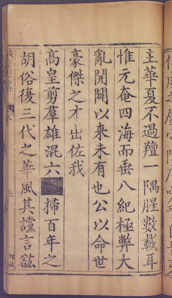 主華夏不過羶一隅腥數載耳
惟元奄四海而垂八紀極弊大
亂開闢以來未有也公以命世
豪傑之才出佐我
高皇剪羣雄混六掃百年之
胡俗復三代之華風其讜言